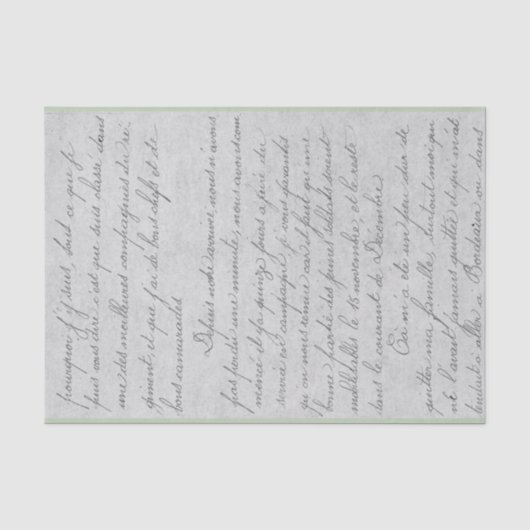 pourquoi j'y suis, tout ce que je
puis vous dire c'est que suis classé dans
une des meilleures compagnies du ré-
giment, et que j'ai de bons chefs et de
bons camarades
Depuis notre arrivée, nous n'avons
pas perdu une minute, nous avons com
mencé il y a quinze jours à faire du
service en campagne, je vous garantis
qu'on nous remue car il faut qu'une
bonne partie des jeunes soldats soient
mobilisables le 15 novembre, et le reste
dans le courant de Décembre.
Ça m'a été un peu dur de
quitter ma famille, surtout moi qui
ne l'avait jamais quittée et qui m'at
tendait à aller à Bordeaux ou dans